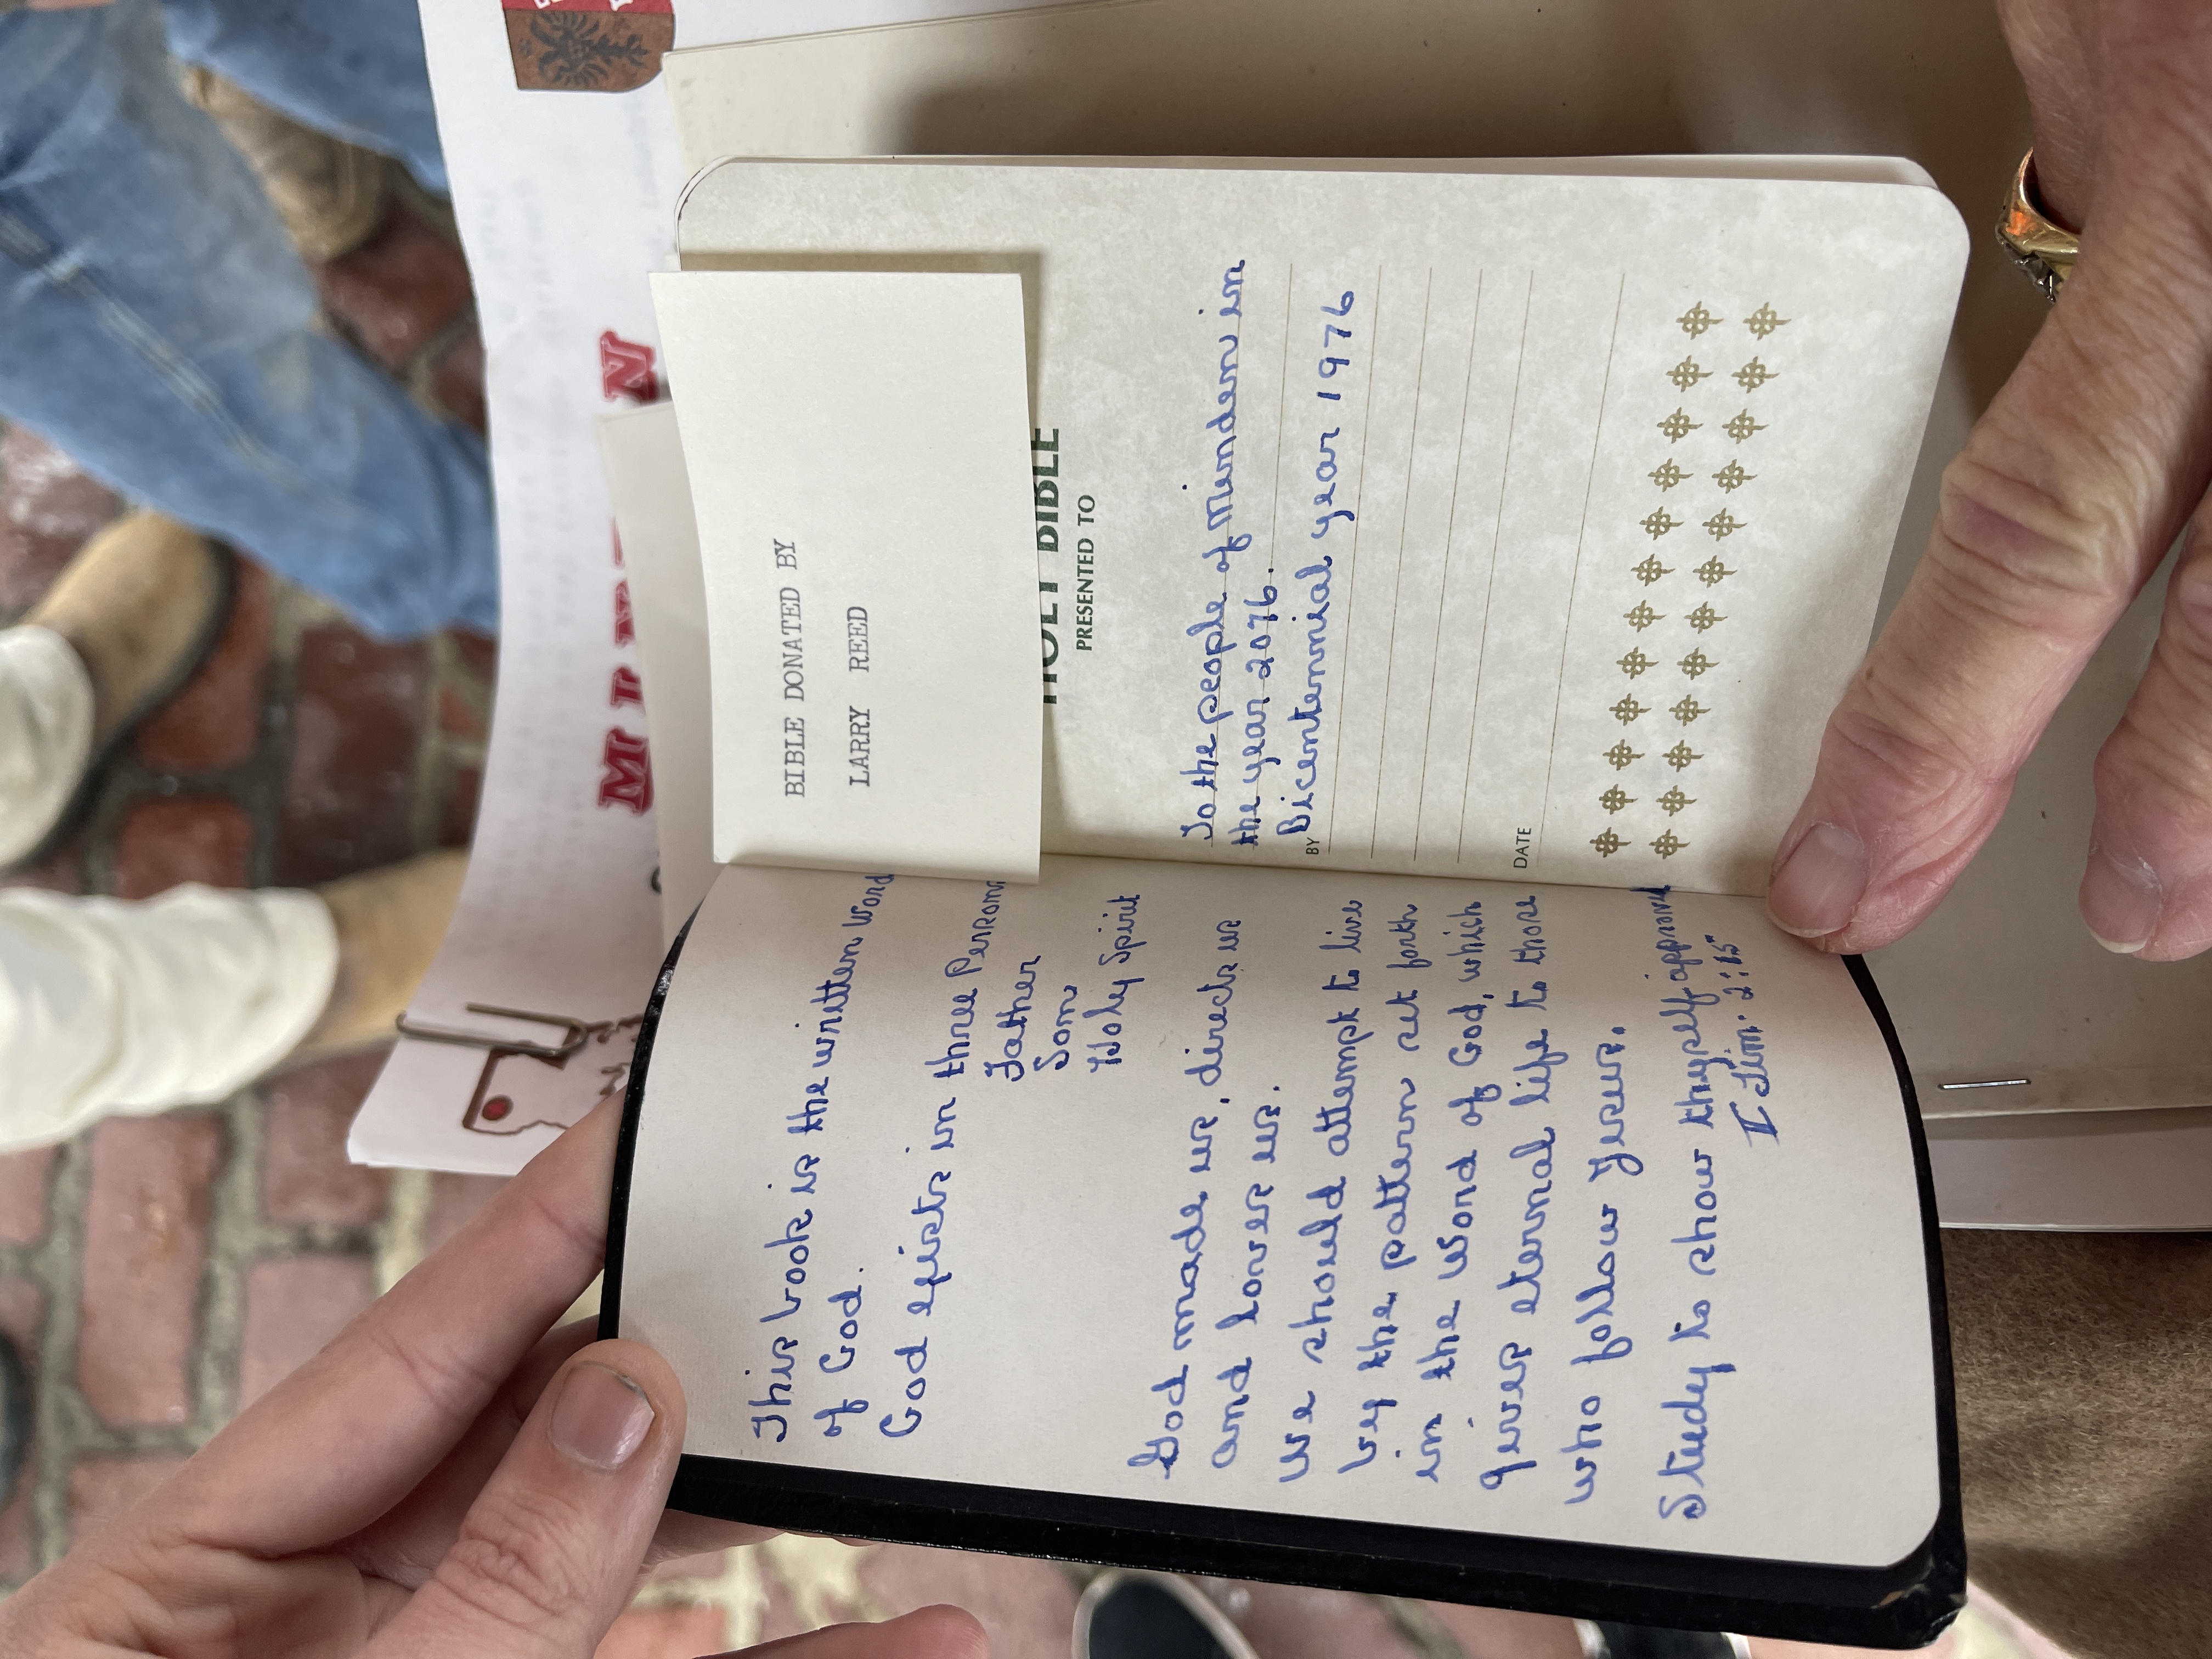 This book is the written Word
of God.
God exists in three Persons
Father
Son
Holy Spirit
God made us, directs us
and loves us.
We should attempt to live
by the pattern set forth
in the Word of God, which
gives eternal life to those
who follow Jesus.
Study to show thyself approved
II Tim. 2:15
BIBLE DONATED BY
LARRY REED
HOLY BIBLE
PRESENTED TO
To the people of Minden in
the year 2076.
BY Bicentennial year 1976
DATE